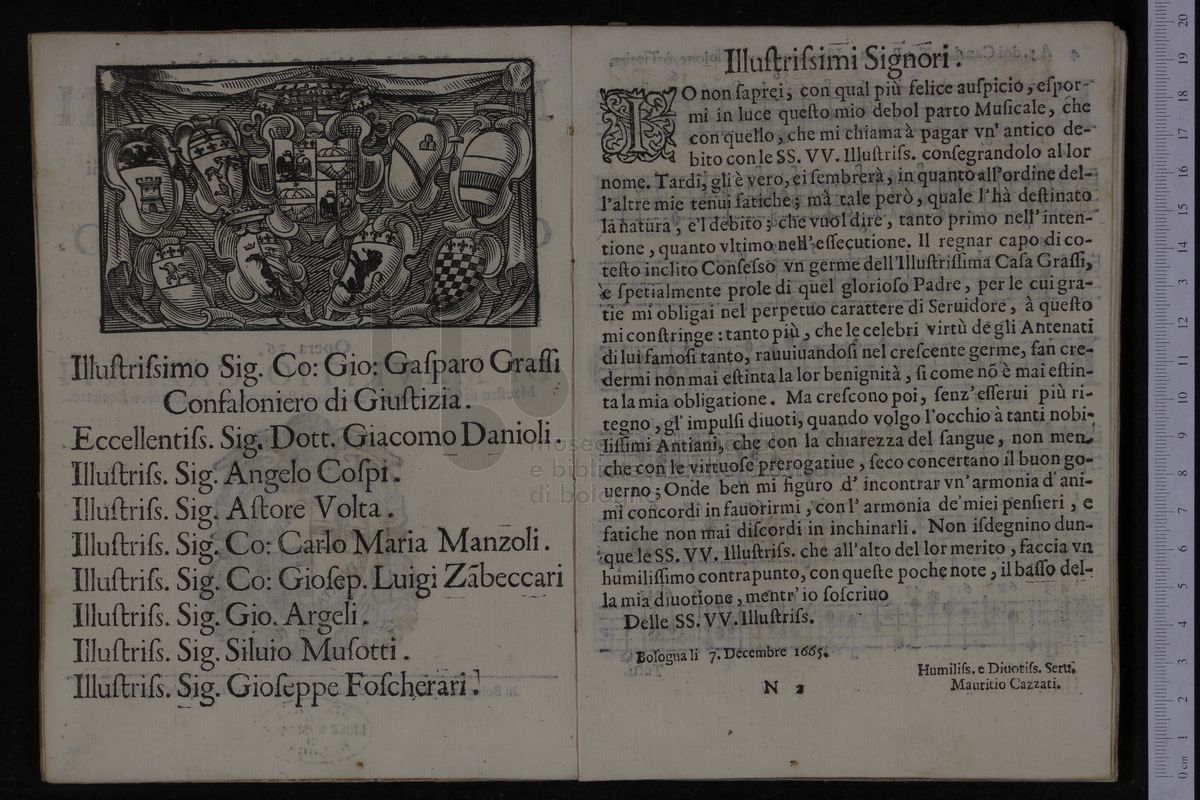 Illuſtriſsimo Sig. Co: Gio: Gaſparo Graſſi
Confaloniero di Giuſtizia.
Eccellentiſs. Sig. Dott. Giacomo Danioli.
Illuſtriſs. Sig. Angelo Coſpi.
Illuſtriſs. Sig. Aſtore Volta.
Illuſtriſs. Sig. Co: Carlo Maria Manzoli.
Illuſtriſs. Sig. Co: Gioſep. Luigi Zãbeccari
Illuſtriſs. Sig. Gio. Argeli.
Illuſtriſs. Sig. Siluio Muſotti.
Illuſtriſs. Sig. Gioſeppe Foſcherari.
Illuſtriſsimi Signori:
IO non ſaprei, con qual più felice auſpicio, eſpor-
mi in luce queſto mio debol parto Muſicale, che
con quello, che mi chiama à pagar vn' antico de-
bito con le SS. VV. Illuſtriſs. conſegrandolo al lor
nome. Tardi, gli è vero, ei ſembrerà, in quanto all'ordine del-
l'altre mie tenui fatiche; mà tale però, quale l'hà deſtinato
la natura, e'l debito; che vuol dire, tanto primo nell' inten-
tione, quanto vltimo nell'eſſecutione. Il regnar capo di co-
teſto inclito Conſeſso vn germe dell'Illuſtriſſima Caſa Graſſi,
e ſpetialmente prole di quel glorioſo Padre, per le cui gra-
tie mi obligai nel perpetuo carattere di Seruidore, à queſto
mi conſtringe: tanto più, che le celebri virtù de gli Antenati
di lui famoſi tanto, rauuiuandoſi nel creſcente germe, fan cre-
dermi non mai eſtinta la lor benignità, ſi come nõ è mai eſtin-
ta la mia obligatione. Ma creſcono poi, ſenz'eſſerui più ri-
tegno, gl' impulſi diuoti, quando volgo l'occhio à tanti nobi-
liſſimi Antiani, che con la chiarezza del ſangue, non men,
che con le virtuoſe prerogatiue, ſeco concertano il buon go-
uerno; Onde ben mi figuro d' incontrar vn'armonia d' ani-
mi concordi in fauorirmi, con l' armonia de' miei penſieri, e
fatiche non mai diſcordi in inchinarli. Non iſdegnino dun-
que le SS. VV. Illuſtriſs. che all'alto del lor merito, faccia vn
humiliſſimo contrapunto, con queſte poche note, il baſſo del-
la mia diuotione, mentr' io ſoſcriuo
Delle SS. VV. Illuſtriſs.
Bologna li 7. Decembre 1665.
Humiliſs. e Diuotiſs. Seru.
Mauritio Cazzati.
N 2